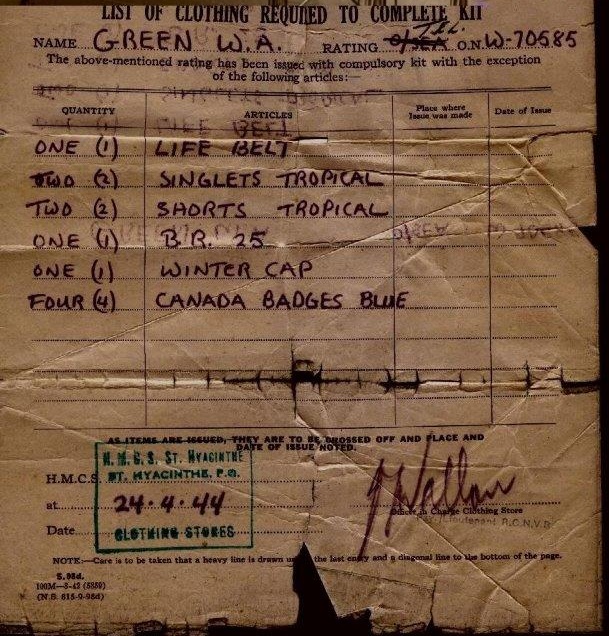 LIST OF CLOTHING REQUIRED TO COMPLETE KIT
NAME GREEN W.A. RATING O/SEA TEL. O.N. W-70585
The above-mentioned rating has been issued with compulsory kit with the exception
of the following articles:—
QUANTITY ARTICLES Place where Issue was made Date of Issue
ONE (1) LIFE BELT
TWO (2) SINGLETS TROPICAL
TWO (2) SHORTS TROPICAL
ONE (1) B.R. 25
ONE (1) WINTER CAP
FOUR (4) CANADA BADGES BLUE
AS ITEMS ARE ISSUED, THEY ARE TO BE CROSSED OFF AND PLACE AND
DATE OF ISSUE NOTED.
H.M.C.S. ST. HYACINTHE
H.M.C.S. ST. HYACINTHE, P.Q.
at 24·4·44
Officer in Charge Clothing Store
Lieutenant R.C.N.V.R
Date CLOTHING STORES
NOTE:—Care is to be taken that a heavy line is drawn the last entry and a diagonal line to the bottom of the page.
S.98d.
100M—5-42 (5859)
(N.S. 815-9-98d)